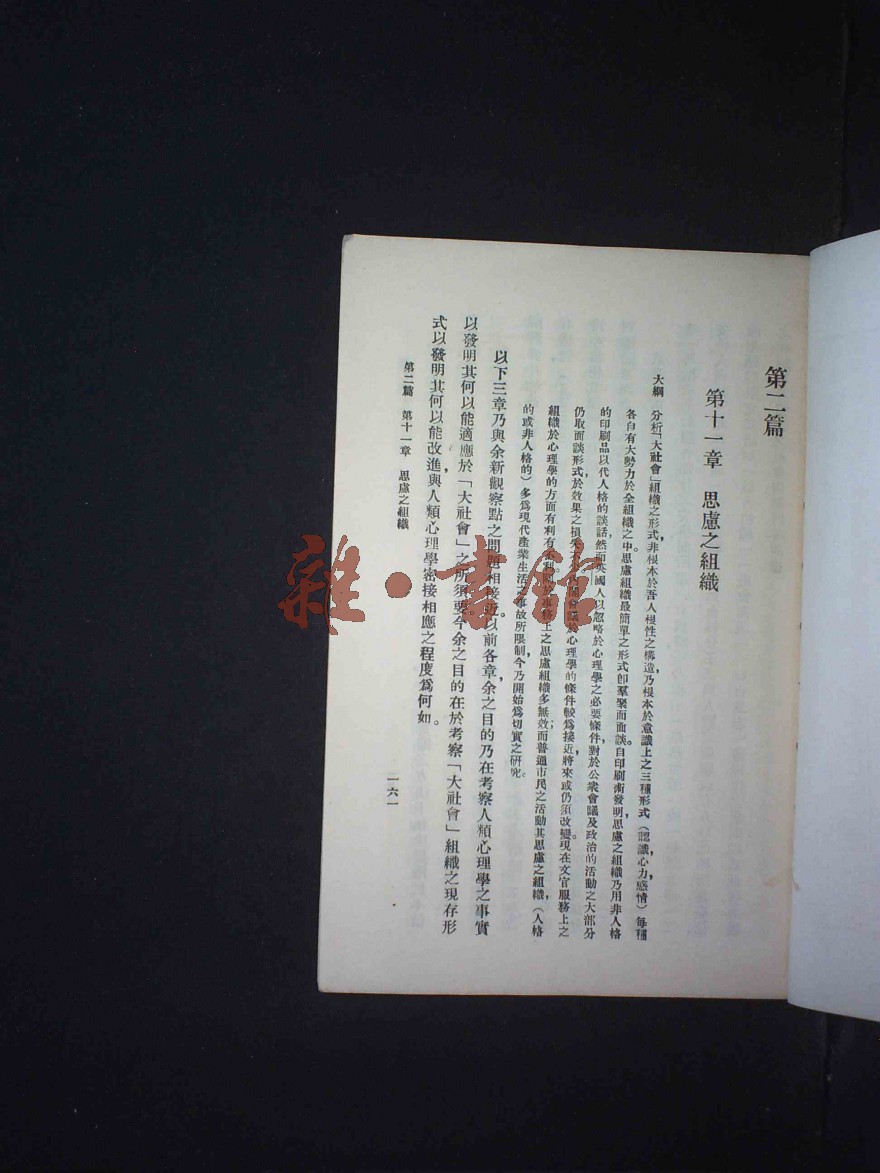 第二篇
第十一章 思慮之組織
大綱 分析「大社會」組織之形式，非根本於吾人根性之構造乃根本於意識上之三種形式（認識，心力感情）每種
各自有大勢力於全組織之中思慮組織最簡單之形式卽羣聚而面談自印刷術發明，思慮之組織乃用非人格
的印刷品以代人格的談話然而英國人以忽略於心理學之必要條件，對於公衆會議及政治的活動之大部分
仍取面談形式於效果之損失
會議於心理學的條件較爲接近將來或仍須改變。現在文官服務上之
組織於心理學的方面有利有不利
務上之思慮組織多無效；而普通市民之活動其思慮之組織，（人格
的或非人格的）多爲現代產業生活之事故所限制今乃開始爲切實之研究。
以下三章乃與余新觀察點之問題相接近。以前各章余之目的乃在考察人類心理學之事實
以發明其何以能適應於「大社會」之所須要。今余之目的在於考察「大社會」組織之現存形
式以發明其何以能改進與人類心理學密接相應之程度爲何如。
第二篇 第十一章 思慮之組織
一六一
雜·書館